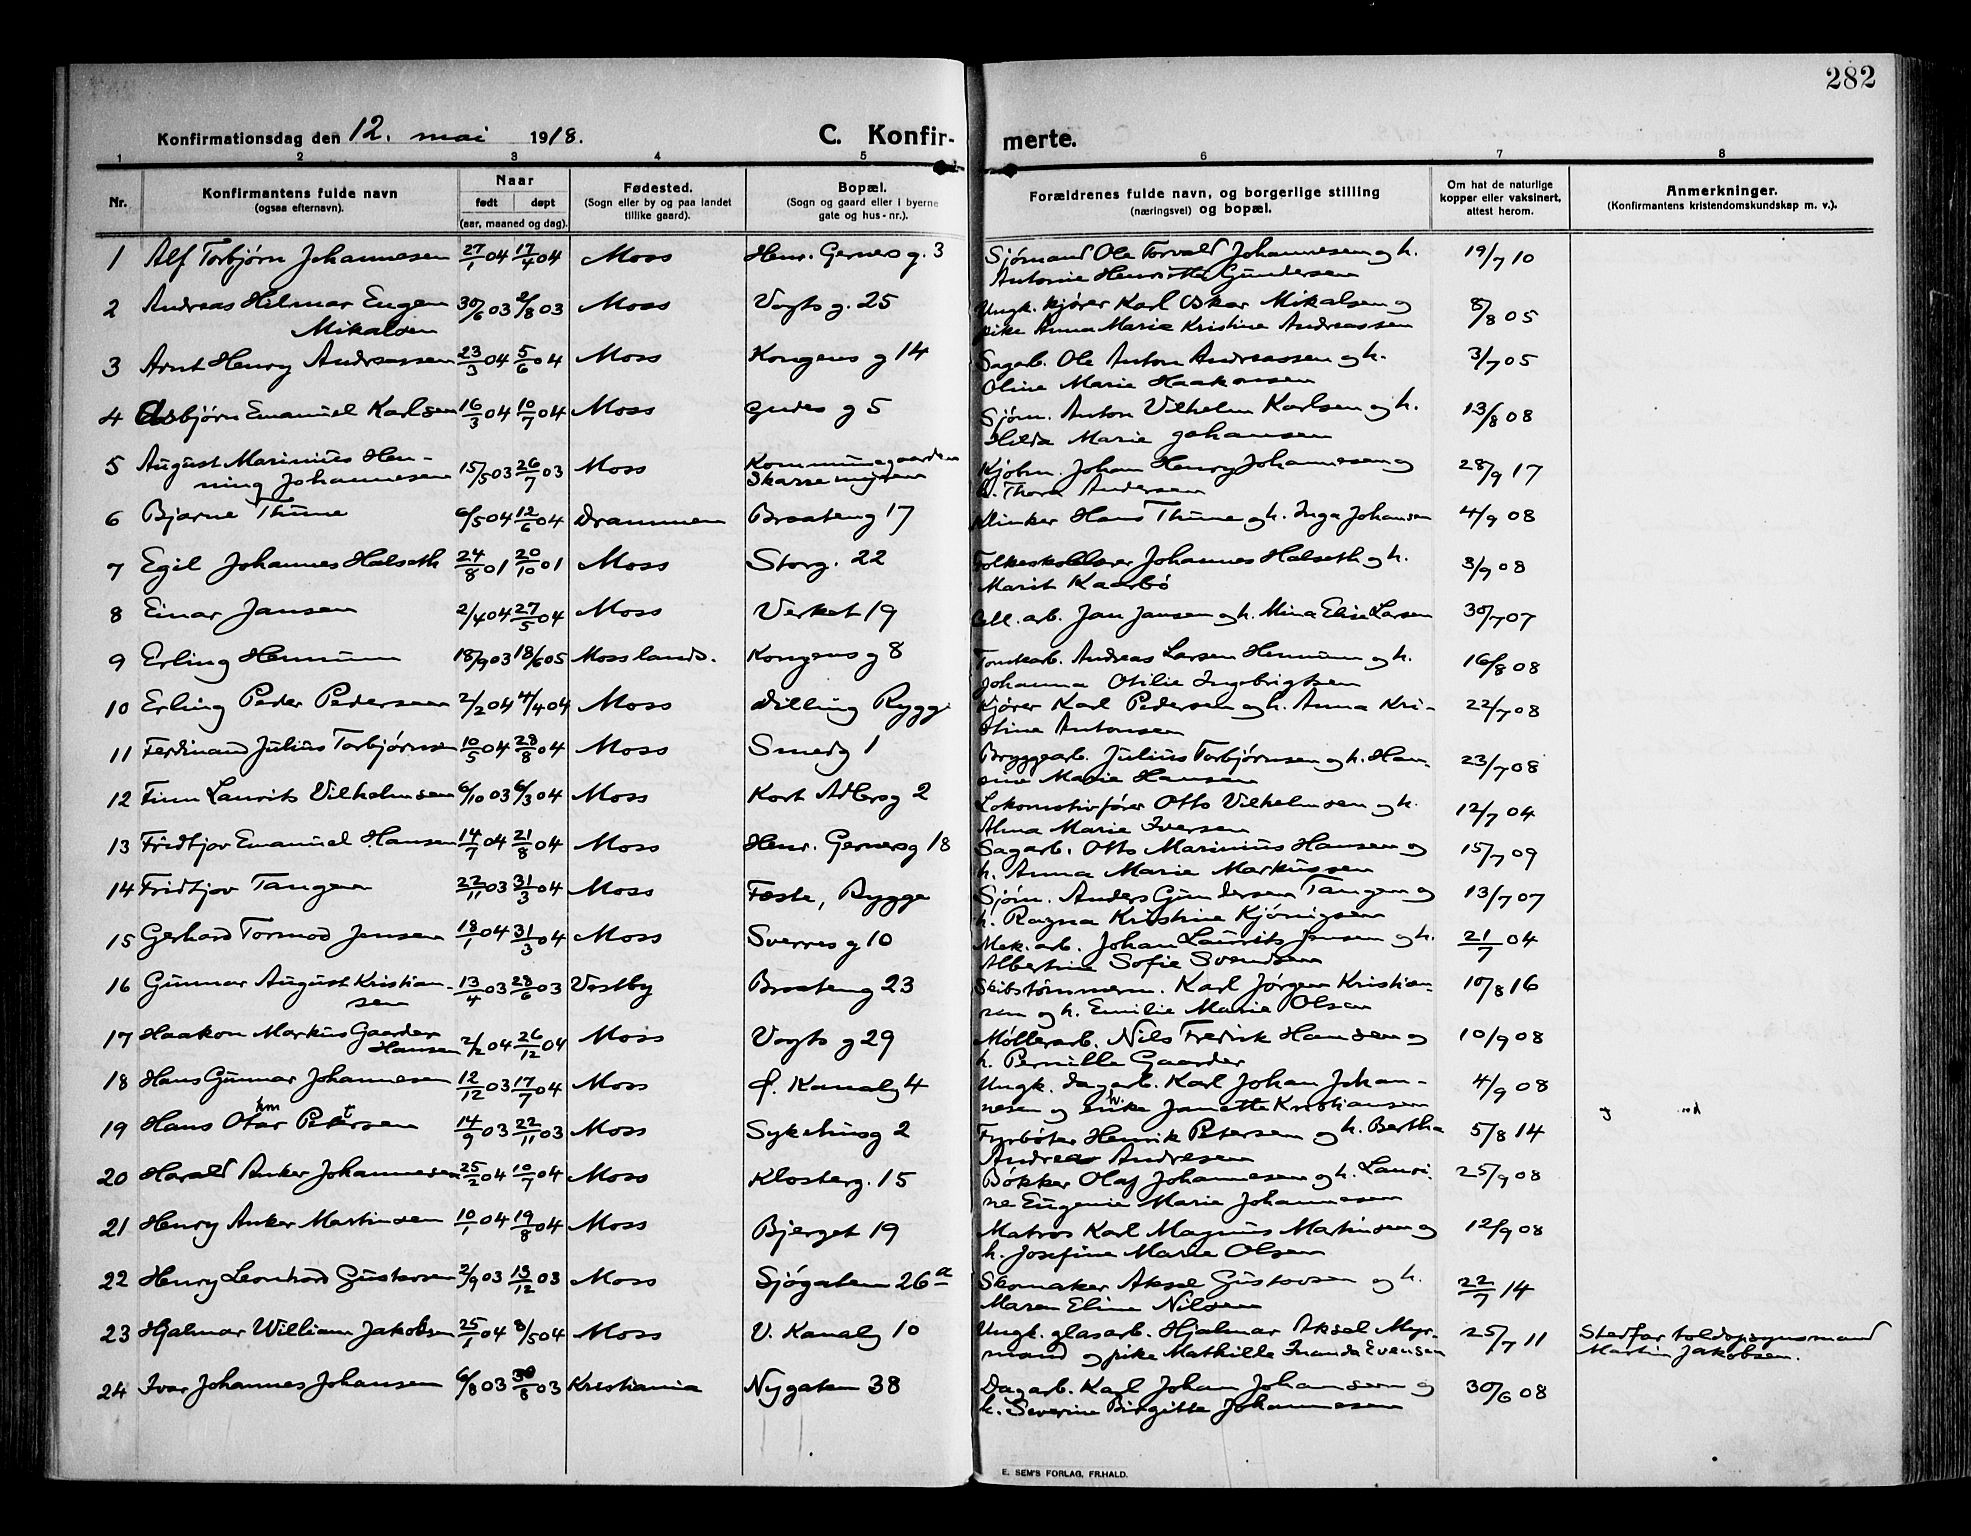 282
Konfirmationsdag den 12. mai 1918. C. Konfirmerte.
1 2 3 4 5 6 7 8
Nr. Konfirmantens fulde navn (ogsaa efternavn). Naar født døpt (aar, maaned og dag). Fødested. (Sogn eller by og paa landet tillike gaard). Bopæl. (Sogn og gaard eller i byerne gate og hus-nr.). Forældrenes fulde navn, og borgerlige stilling (næringsvei) og bopæl. Om hat de naturlige kopper eller vaksinert, attest herom. Anmerkninger. (Konfirmantens kristendomskundskap m. v.).
1 Alf Torbjørn Johannesen 27/1 04 17/4 04 Moss Henr. Gerners g. 3 Sjømand Ole Torvald Johannesen og h. 19/7 10
Antonie Henriette Gundersen
2 Andreas Hilmar Eugen 30/6 03 2/8 03 Moss Vogts g. 25 Ungk. kjører Karl Oskar Mikalsen og 8/8 05
Mikalsen pike Anna Marie Kristine Andreassen
3 Arnt Henry Andreassen 23/3 04 5/6 04 Moss Kongens g 14 Sagarb. Ole Anton Andreassen og h. 3/7 05
Oline Marie Haakonsen
4 Asbjørn Emanuel Karlsen 16/3 04 10/7 04 Moss Gudes g 5 Sjøm. Anton Vilhelm Karlsen og h. 13/8 08
Hilda Marie Johansen
5 August Marinius Hen- 15/5 03 26/7 03 Moss Kommunegaarden Kjøbm. Johan Henry Johannesen og 28/9 17
ning Johannesen Skarmyren h. Thora Andersen
6 Bjarne Thune 6/5 04 12/6 04 Drammen Braateng 17 Klinker Hans Thune og h. Inga Johansen 4/9 08
7 Egil Johannes Halseth 24/8 01 20/10 01 Moss Storg. 22 Folkeskolelærer Johannes Halseth og h. 3/9 08
Marit Kaarbø
8 Einar Jansen 2/4 04 27/5 04 Moss Verket 19 Cell. arb. Jan Jansen og h. Mina Elise Larsen 30/7 07
9 Erling Hennum 18/9 03 18/6 05 Moss lands. Kongens g 8 Tomtearb. Andreas Larsen Hennum og h. 16/8 08
Johanna Otilie Ingebrigtsen
10 Erling Peder Pedersen 2/2 04 4/4 04 Moss Dilling Rygge Kjører Karl Pedersen og h. Anna Kri- 22/7 08
stine Antonsen
11 Ferdinand Julius Torbjørnsen 10/5 04 28/8 04 Moss Smedg 1 Bryggearb. Julius Torbjørnsen og h. Han- 23/7 08
sine Marie Hansen
12 Finn Laurits Vilhelmsen 6/10 03 6/3 04 Moss Kort Adlersg 2 Lokomotivfører Otto Vilhelmsen og h. 12/7 04
Alma Marie Iversen
13 Fridtjov Emanuel Hansen 14/7 04 21/8 04 Moss Henr. Gernersg 18 Sagarb. Otto Marinius Hansen og 15/7 09
h. Anna Marie Markussen
14 Fridtjov Tangen 22/11 03 31/3 04 Moss Feste, Rygge Sjøm. Anders Gundersen Tangen og 13/7 07
h. Ragna Kristine Kjønigsen
15 Gerhard Tormod Jensen 18/1 04 31/3 04 Moss Sverres g 10 Mek. arb. Johan Laurits Jensen og h. 21/7 04
Albertine Sofie Svendsen
16 Gunnar August Kristian- 13/4 03 28/6 03 Vestby Braateng 23 Skibstømmerm. Karl Jørgen Kristian- 10/8 16
sen sen og h. Emilie Marie Olsen
17 Haakon Markus Gaarder Moss Vogts g 29 Møllerarb. Nils Fredrik Hansen og 10/9 08
Hansen 2/2 04 26/12 04 h. Pernille Gaarder
18 Hans Gunnar Johannesen 12/12 03 17/7 04 Moss f. Kanalg 4 Ungk. dagarb. Karl Johan Johan- 4/9 08
nesen og h. Janette Kristiansen
19 Hans Otar Petersen 14/9 03 22/11 03 Moss Sykehusg 2 Fyrbøter Henrik Petersen og h. Bertha 5/8 14
Andrea Andresen
20 Harald Anker Johannesen 25/2 04 10/7 04 Moss Klosterg. 15 Bøkker Olaf Johannesen og h. Lauri- 25/9 08
ne Eugenie Marie Johannesen
21 Henry Anker Martinsen 10/1 04 19/8 04 Moss Bjerget 19 Matros Karl Magnus Martinsen og 12/9 08
h. Josefine Marie Olsen
22 Henry Leonhard Gustavsen 2/9 03 13/12 03 Moss Sjøgaten 26a Skomaker Aksel Gustavsen og h. 22/7 14
Maren Eline Nilsen
23 Hjalmar William Jakobsen 25/1 04 8/5 04 Moss V. Kanalg 10 Ungk. glasarb. Hjalmar Aksel Myr- 25/7 11 Stedfar toldopsynsmand
mand og pike Mathilde Evensen Martin Jakobsen.
24 Ivar Johannes Johansen 6/8 03 30/8 03 Kristiania Nygaten 38 Dagarb. Karl Johan Johansen og 30/6 08
h. Severine Birgitte Johannesen
E. SEM'S FORLAG, FR.HALD.